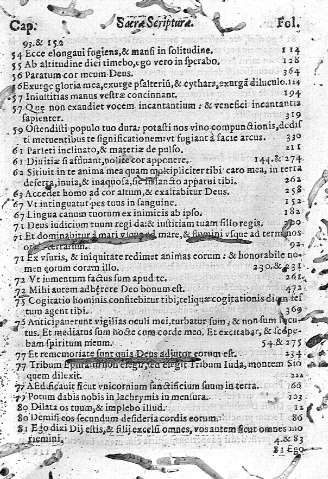 Cap. Sacræ Scripturæ. Fol.
93. & 152
54 Ecce elongaui fugiens, & mansi in solitudine. 114
55 Ab altitudine diei timebo, ego vero in sperabo. 128
56 Paratum cor meum Deus. 364
56 Exurge gloria mea, exurge psalteriũ, & cythara, exurgã diluculo. 114
57 Iniustitias manus vestræ concinnant. 194
57 Que non exaudiet vocem incantantium: & venefici incantantis
sapienter. 319
59 Ostendisti populo tuo dura: potasti nos vino compunctionis, dedisti
metuentibus te significationem vt fugiant à facie arcus. 330
61 Parieti inclinato, & materiæ de pulso. 211
61 Diuitiæ si affluant, nolite cor apponere. 144. & 274
62 Sitiuit in te anima mea quam multipliciter tibi caro mea, in terra
deserta, inuia, & inaquosa, sic in sancto apparui tibi. 262
63 Accedet homo ad cor altum, & exaltabitur Deus. 258
67 Vt intinguatur pes tuus in sanguine. 152
67 Lingua canum tuorum ex inimicis ab ipso. 182
71 Deus iudicium tuum regi da: & iustitiam tuam filio regis.
71 Et dominabitur à mari vsque ad mare, & flumini vsque ad terminos
71 Ex vsuris, & iniquitate redimet animas eorum: & honorabile nomen
eorum coram illo. 230. &
72 Vt iumentum factus sum apud te. 261
72 Mihi autem adhærere Deo bonum est. 472
75 Cogitatio hominis confitebitur tibi, reliquæ cogitationis diem festum
agent tibi. 369
76 Anticipauerunt vigilias oculi mei, turbatus sum, & non sum locutus.
Et meditatus sum nocte cum corde meo. Et excitabar, & scopebam
spiritum meum. 54 & 275
77 Et rememorati sunt quia Deus adiutor eorum est. 234
77 Tribum non elegit, sed elegit Tribum Iuda, montem Sion
quem dilexit.
77 Aedificauit sicut vnicornium sanctificium suum in terra. 66
79 Potum dabis nobis in lachrymis in mensura. 103
80 Dilata os tuum, & implebo illud. 12
80 Demisi eos secundum desideria cordis eorum. 86
81 Ego dixi Dij estis, & filij excelsi omnes, vos autem sicut omnes moriemini.
4. & 83
81 Ego